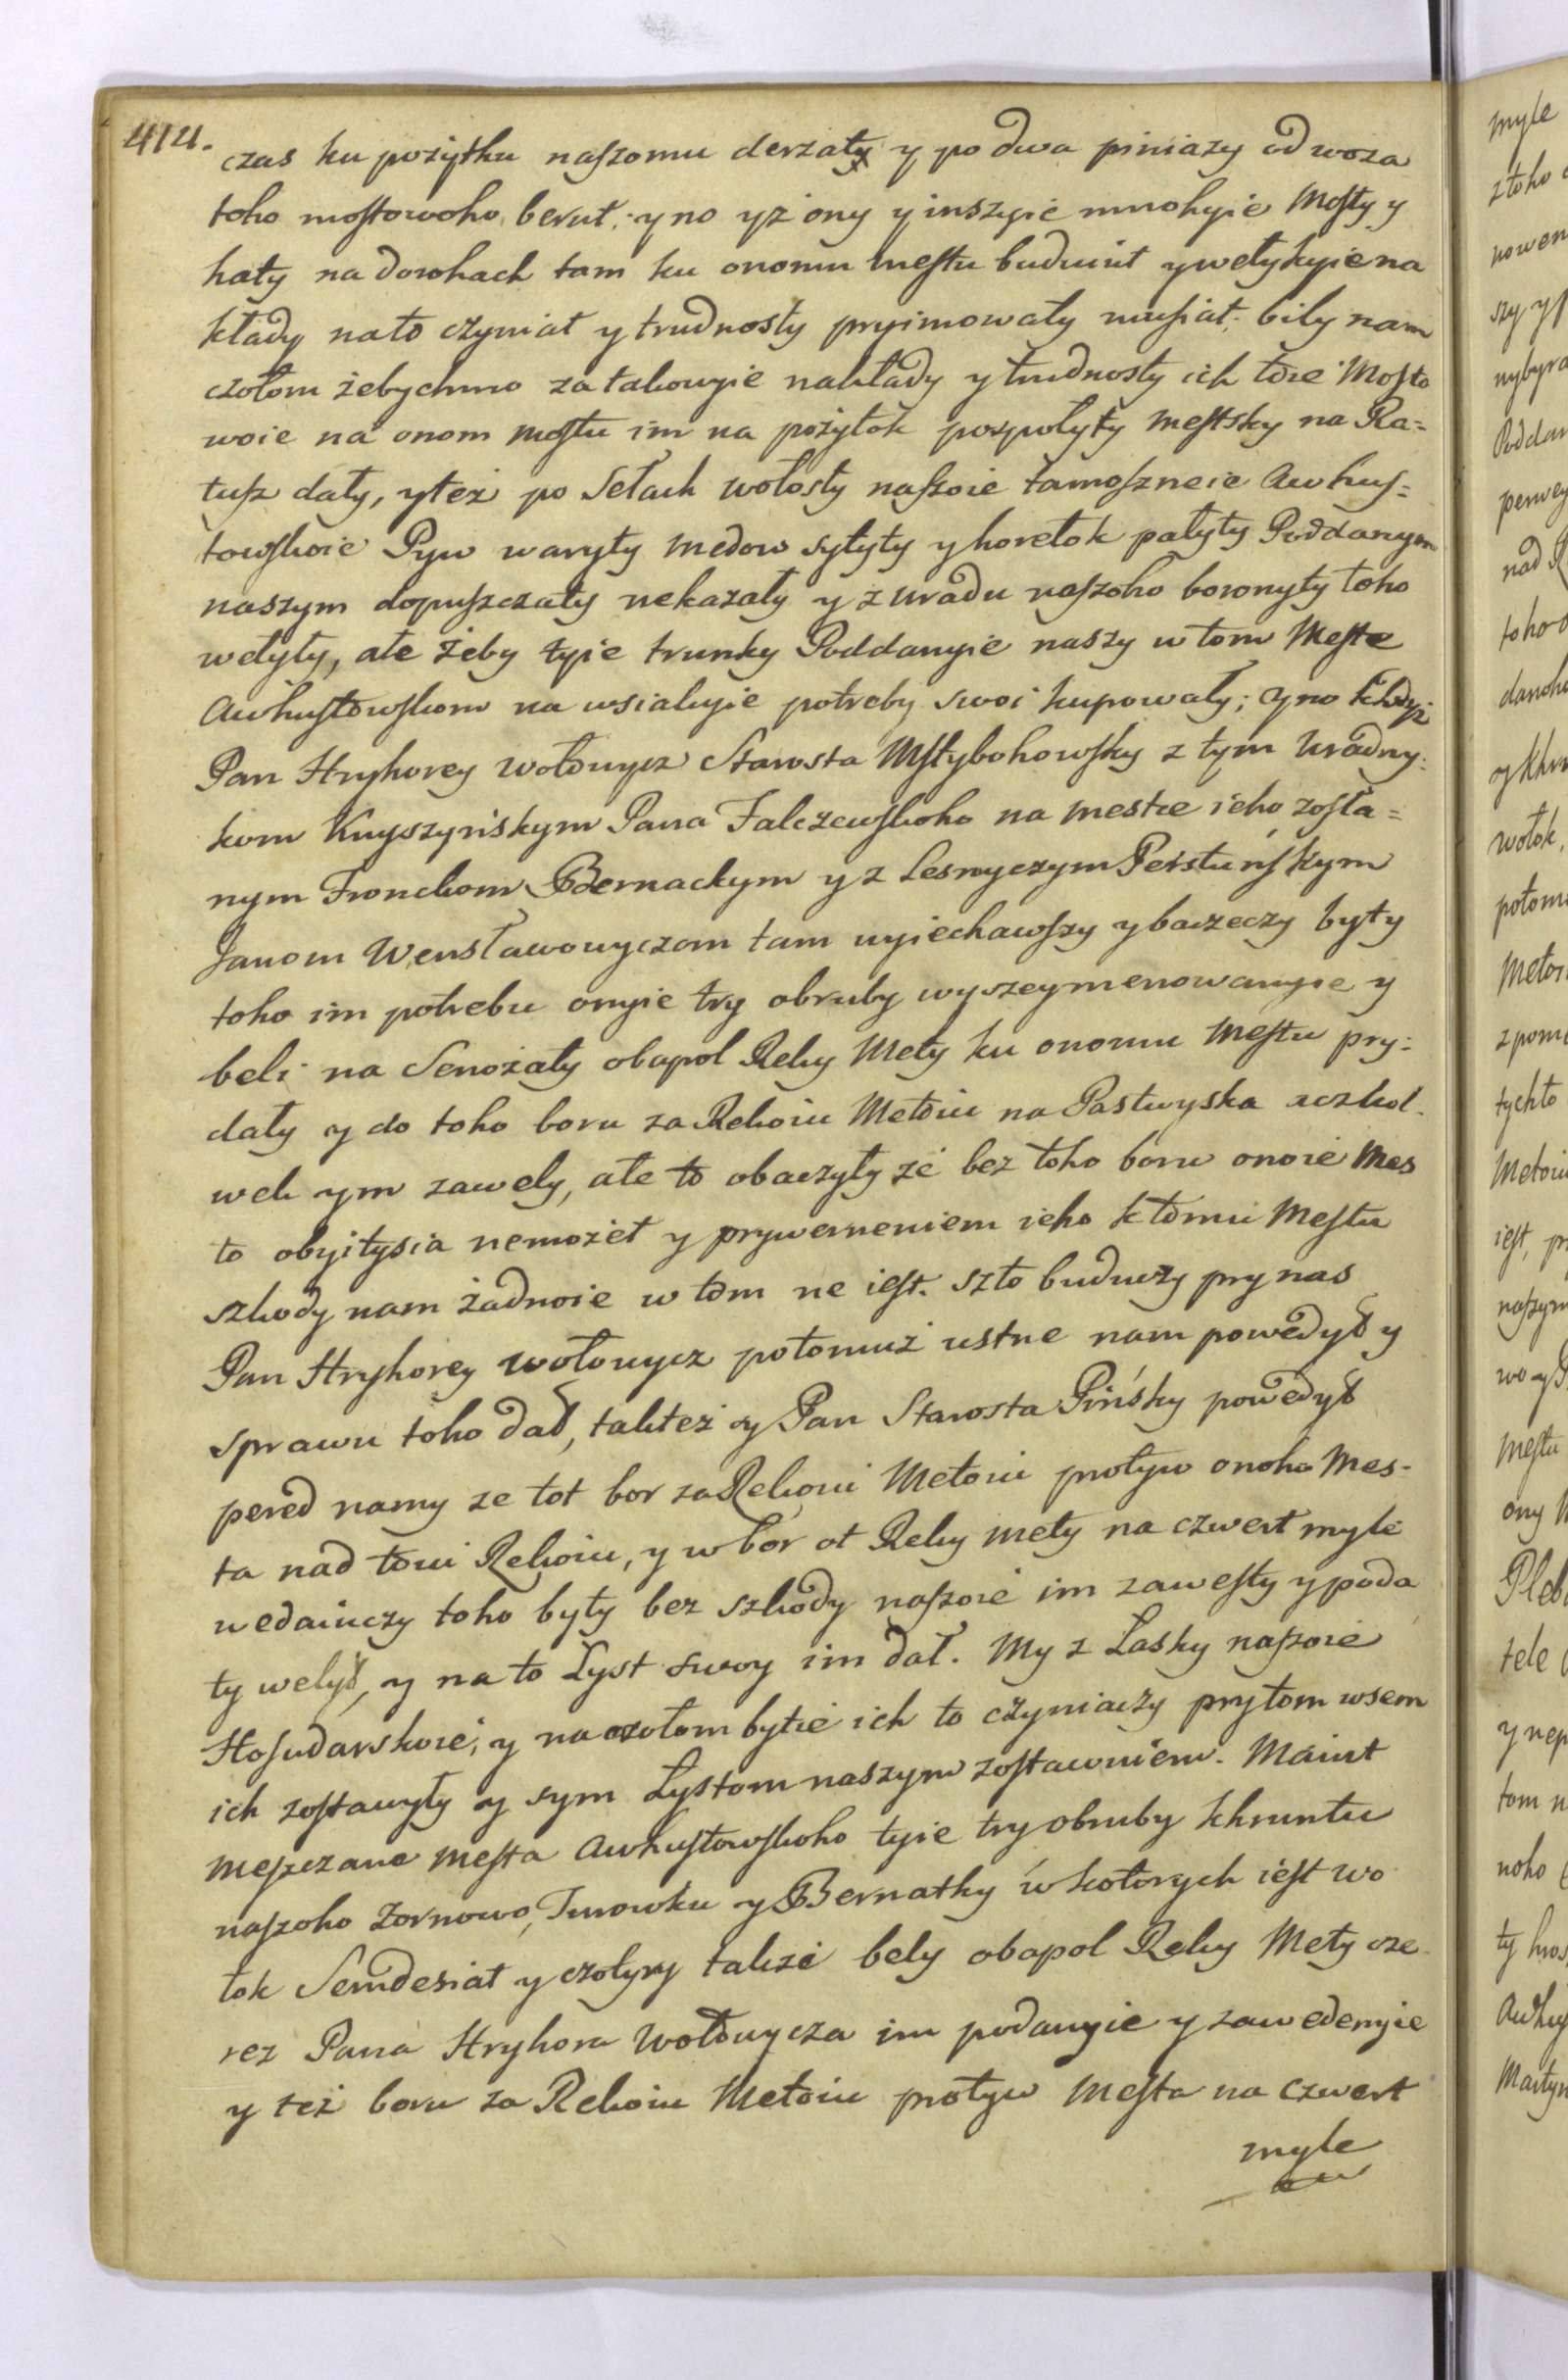 414.
czas ku pożytku naszomu derzały y po dwa piniazy od woza
toho mostowoho berut: y no yż ony y inszyie mnohyie Mosty y
haty na dorohach tam ku onomu mestu buduiut y wełykyie na
kłady na to czyniat y trudnosty pryimowaty musiat: bily nam
czołom żebychmo za takowyie nakłady y trudnosty ich toie Mosto
woie na onom mostu im na pożytok pospołyty mestsky na Ra=
tusz dały, y też po Sełach wołosty naszoie tamoszneie Awhus=
towskoie Pyw waryty medow sytyty y horełok pałyty Poddanym
naszym dopuszczaty nekazały y z uradu naszoho boronyty toho
wełyły, ałe żeby tyie trunky Poddanyie naszy w tom Meste
Awhustowskom na wsiakyie potreby swoi kupowały; Ayno khdyż
Pan Hryhorey Wołowycz Starosta Mstybohowsky z tym Uradny=
kom Knyszyńskym Pana Falczewskoho na mestce ieho zosła=
nym Fronckom Biernackym y z Lesnyczym Perstuńskym
Janom Wensławowyczom tam uyiechawszy y baczeczy byty
toho im potrebu onyie try obruby wyszeymenowanyie y
beli na Senożaty obapol Reky Mety ku onomu Mestu pry=
dały y do toho boru za Rekoiu Metoiu na Pastwyska uczkol.
wek ym zawely, ałe to obaczyły że bez toho boru onoie Mes
to obyitysia nemożet y prywerneniem ieho k tomu Mestu
szkody nam żadnoie w tom ne iest. szto buduczy pry nas
Pan Hryhorey Wołowycz potomuż ustne nam powedył y
sprawu toho dał, takteż y Pan Starosta Pińsky powedył
pered namy że tot bor za Rekoiu Metoiu protyw onoho Mes-
ta nad toiu Rekoiu, y w bor ot Reky Mety na czwert myli
wedaiuczy toho byty bez szkody naszoie im zawesty y poda
ty wełył, y na to Lyst swoy im dał. My z Łasky naszoie
Hosudarskoie, y na czołom bytie ich to czyniaczy pry tom wsem
ich zostawyły y sym Lystom naszym zostawuiem. Maiut
meszczane mesta Awhustowskoho tyie try obruby khruntu
naszoho Żornowo, Turowku y Bernatky w kotorych iest wo
łok Semdesiat y czotyry także bely obapol Reky Mety cze
rez Pana Hryhora Wołowycza im podanyie y zawedenyie
y też boru za Rekoiu Metoiu protyw Mesta na czwert
myle
myle
z toho
nowen
szy y p
wybyra
Poddan
perwey
nad R
toho o
danoho
y Khr
wołok,
potom
Metoi
z pom
tychto
Metoiu
iest, pr
naszym
wo y P
Mestu
ony
Pleb
tele
y nep
tom n
noho
ty hros
Awhus
Martyn